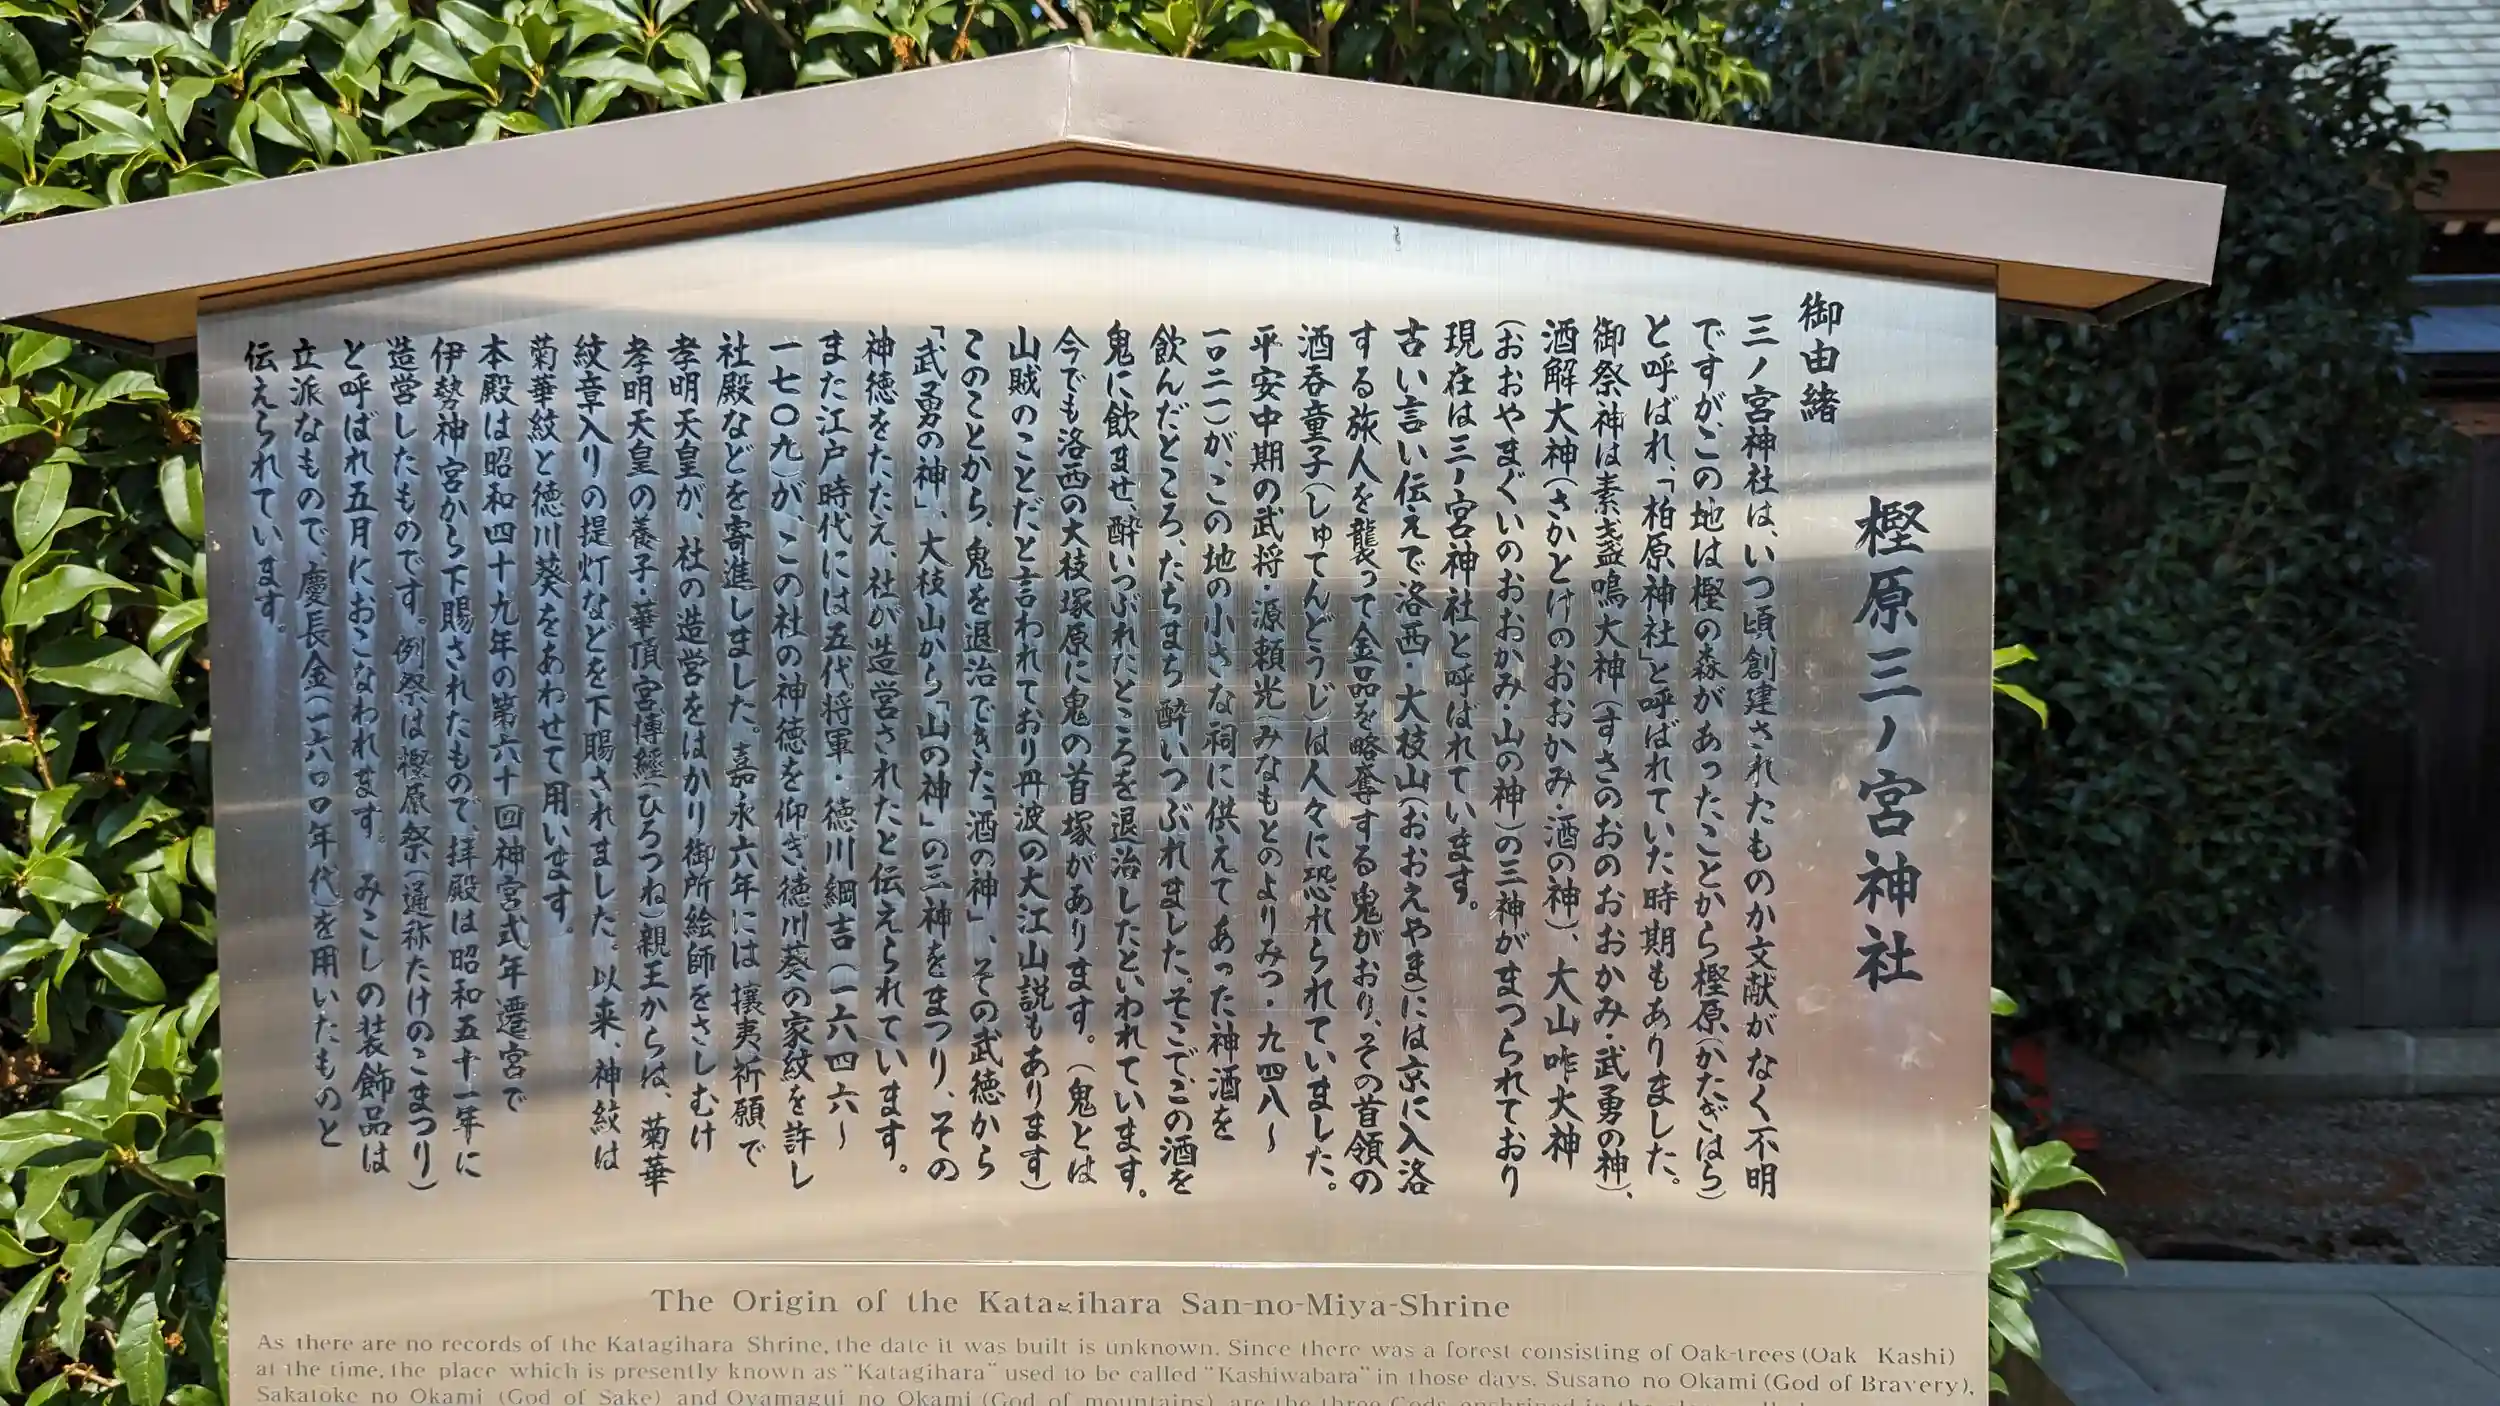 御由緒
樫原三ノ宮神社
三ノ宮神社は、いつ頃創建されたものか文献がなく不明
ですが、この地は樫の森があったことから樫原(かたぎはら)
と呼ばれ、「柏原神社」と呼ばれていた時期もありました。
御祭神は素戔嗚大神(すさのおのおおかみ・武勇の神)、
酒解大神(さかとけのおおかみ・酒の神)、大山咋大神
(おおやまぐいのおおかみ・山の神)の三神がまつられており
現在は三ノ宮神社と呼ばれています。
古い言い伝えで洛西・大枝山(おおえやま)には京に入洛
する旅人を襲って金品を略奪する鬼がおり、その首領の
酒呑童子(しゅてんどうじ)は人々に恐れられていました。
平安中期の武将・源頼光(みなもとのよりみつ・九四八〜
一〇二一)が、この地の小さな祠に供えてあった神酒を
飲んだところ、たちまち酔いつぶれました。そこでこの酒を
鬼に飲ませ、酔いつぶれたところを退治したといわれています。
今でも洛西の大枝塚原に鬼の首塚があります。(鬼とは
山賊のことだと言われており丹波の大江山説もあります)
このことから、鬼を退治できた「酒の神」、その武徳から
「武勇の神」、大枝山から「山の神」の三神をまつり、その
神徳をたたえ、社が造営されたと伝えられています。
また江戸時代には五代将軍・徳川綱吉(一六四六〜
一七〇九)が、この社の神徳を仰ぎ徳川葵の家紋を許し
社殿などを寄進しました。嘉永六年には攘夷祈願で
孝明天皇が、社の造営をはかり御所絵師をさしむけ
孝明天皇の養子・華頂宮博經(ひろつね)親王からは、菊華
紋章入りの提灯などを下賜されました。以来、神紋は
菊華紋と徳川葵をあわせて用います。
本殿は昭和四十九年の第六十回神宮式年遷宮で
伊勢神宮から下賜されたもので、拝殿は昭和五十一年に
造営したものです。例祭は樫原祭(通称たけのこまつり)
と呼ばれ五月におこなわれます。みこしの装飾品は
立派なもので、慶長金(一六〇〇年代)を用いたものと
伝えられています。
The Origin of the Katagihara San-no-Miya-Shrine
As there are no records of the Katagihara Shrine, the date it was built is unknown. Since there was a forest consisting of Oak-trees (Oak Kashi)
at the time, the place which is presently known as "Katagihara" used to be called "Kashiwabara" in those days. Susano no Okami (God of Bravery),
Sakatoke no Okami (God of Sake) and Oyamagui no Okami (God of mountains) are the three Gods enshrined in the